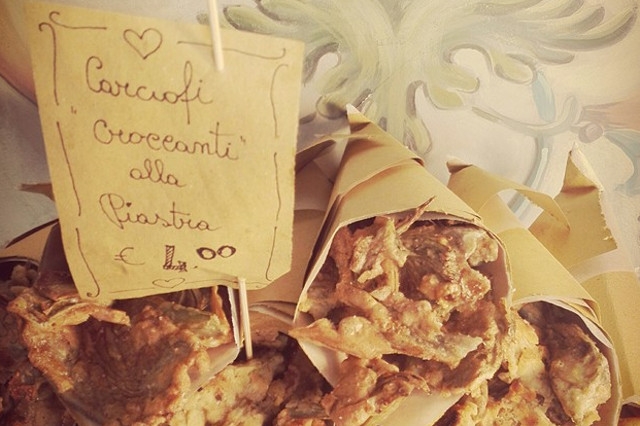 Carciofi
"Croccanti"
alla
Piastra
€ 4.00